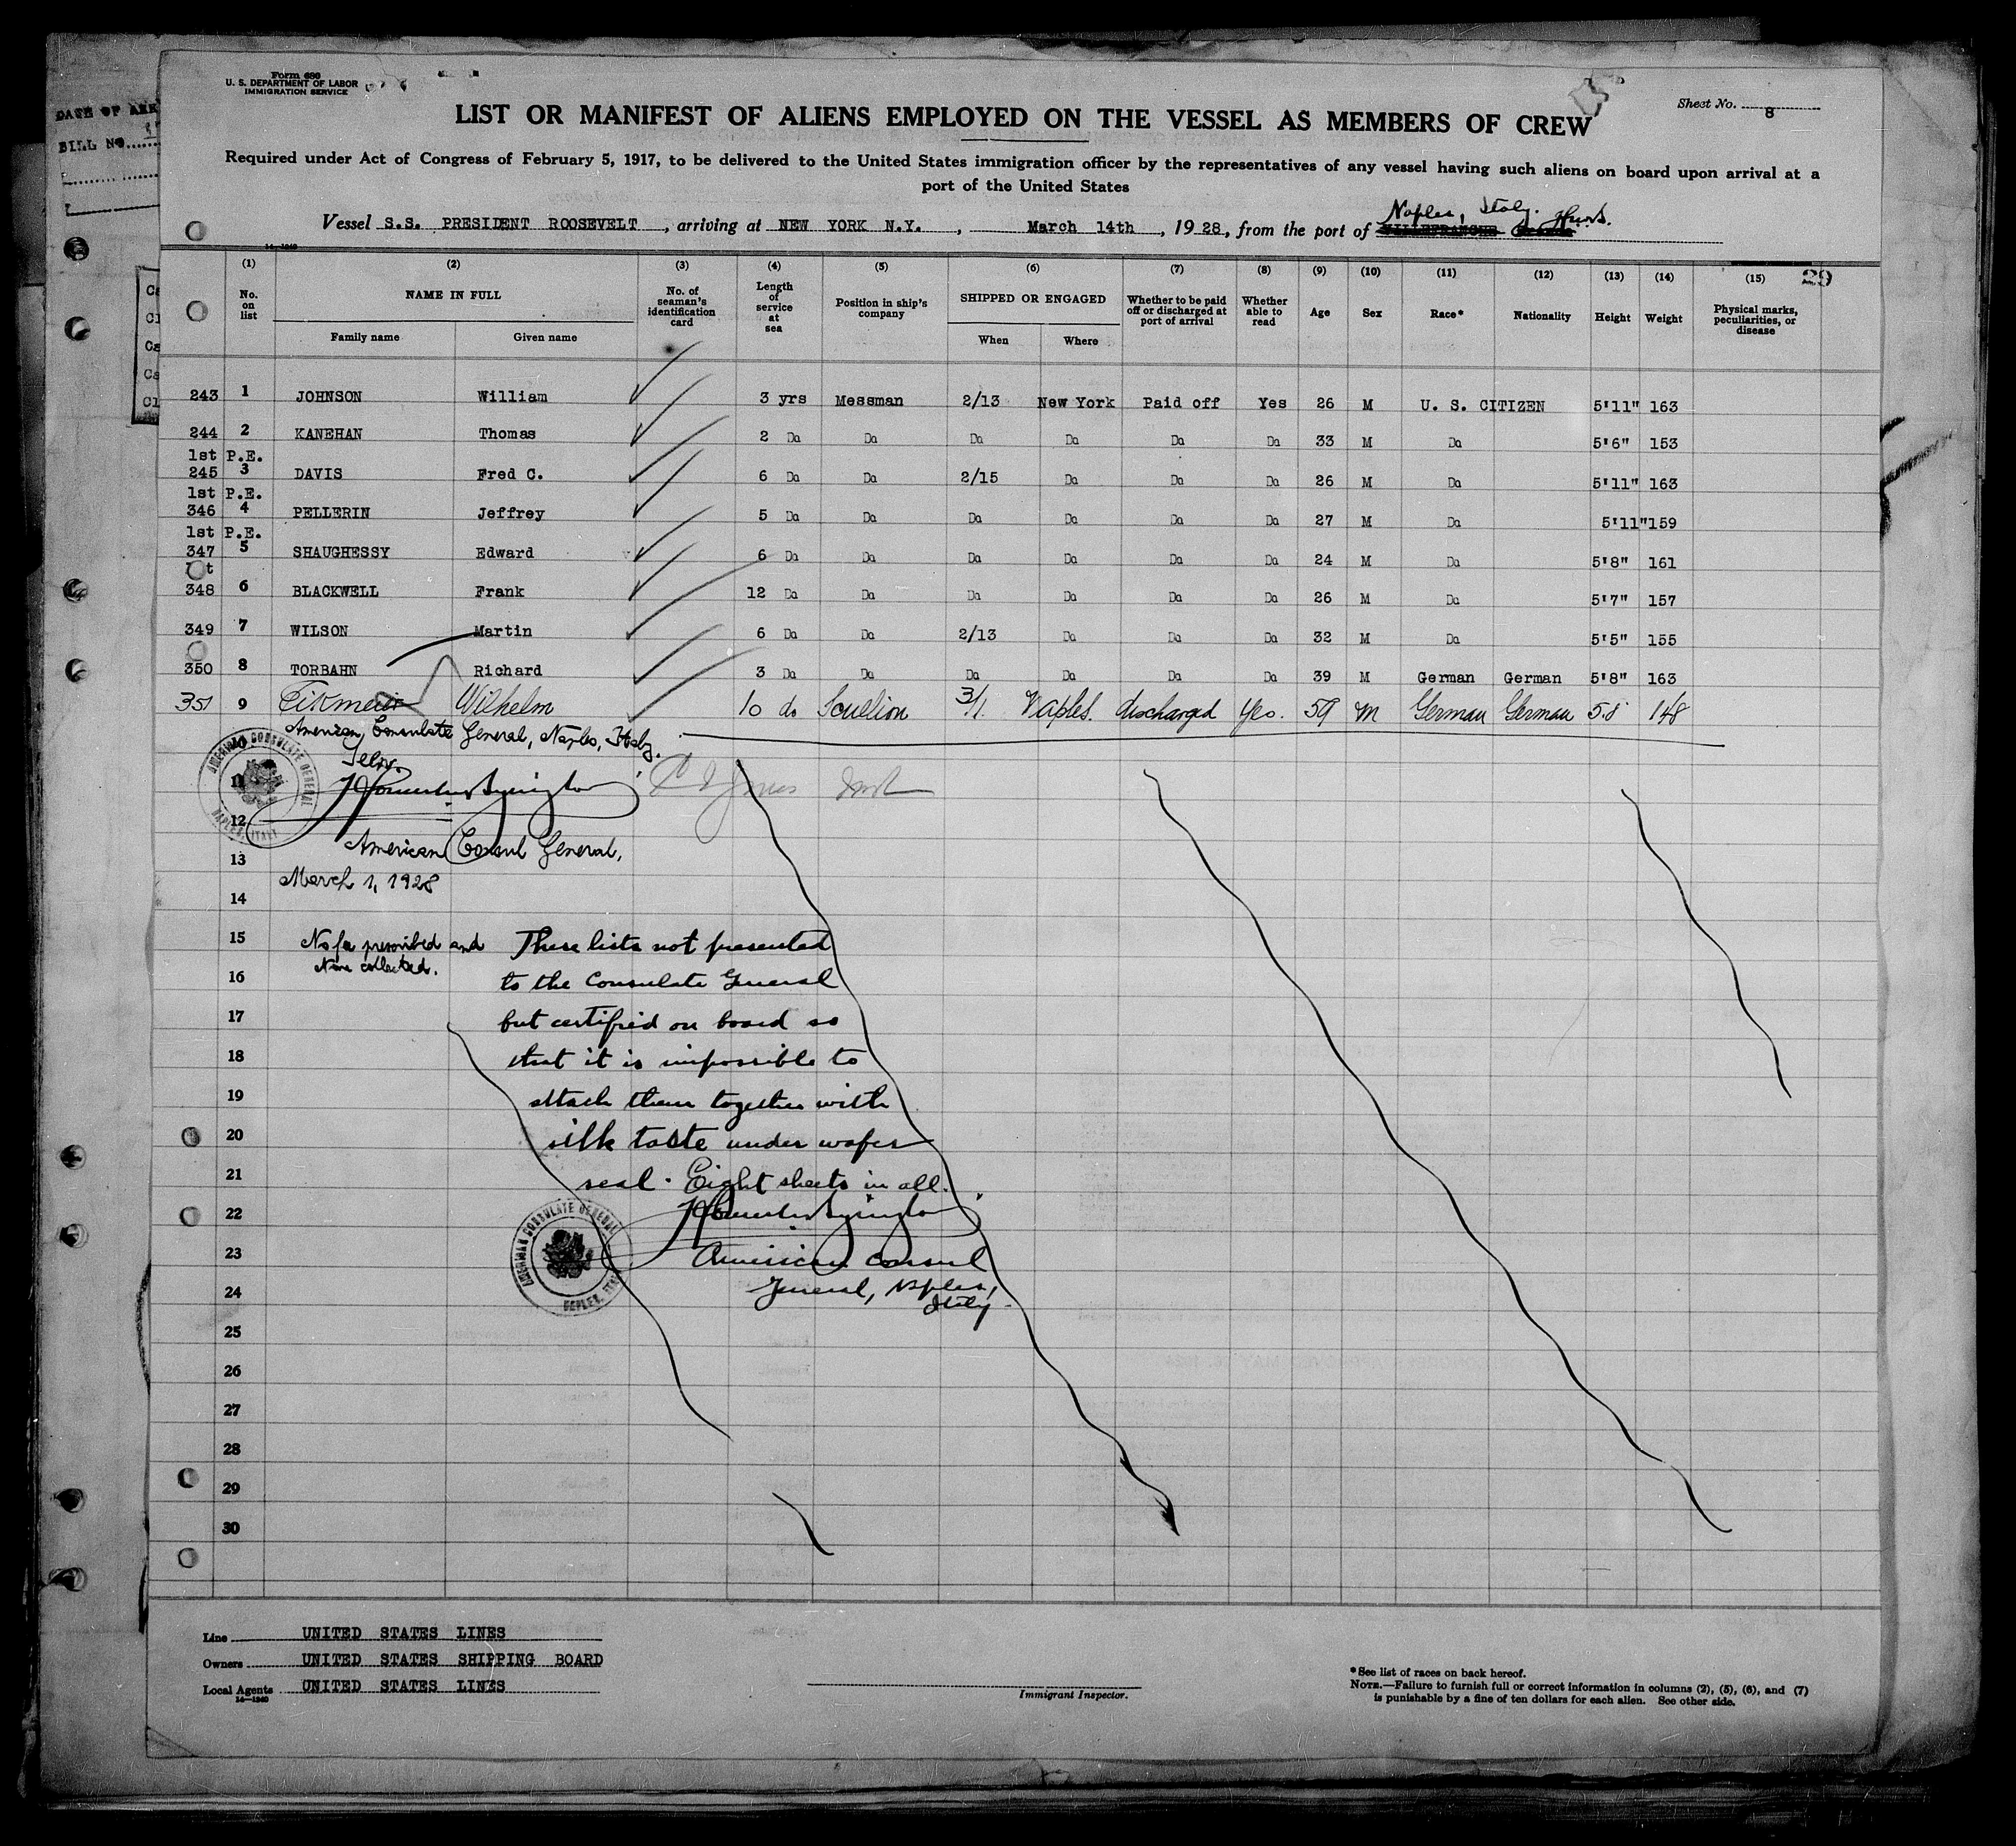 Form 680
U. S. DEPARTMENT OF LABOR
IMMIGRATION SERVICE
DATE OF ARR
BILL NO.
Sheet No. 8
LIST OR MANIFEST OF ALIENS EMPLOYED ON THE VESSEL AS MEMBERS OF CREW
Required under Act of Congress of February 5, 1917, to be delivered to the United States immigration officer by the representatives of any vessel having such aliens on board upon arrival at a
port of the United States
Naples, Italy.
Vessel S.S. PRESIDENT ROOSEVELT, arriving at NEW YORK N.Y., March 14th, 1928, from the port of VILLEFRANCHE
14-1240
29
(1) (2) (3) (4) (5) (6) (7) (8) (9) (10) (11) (12) (13) (14) (15)
No. on list NAME IN FULL No. of seaman's identification card Length of service at sea Position in ship's company SHIPPED OR ENGAGED Whether to be paid off or discharged at port of arrival Whether able to read Age Sex Race* Nationality Height Weight Physical marks, peculiarities, or disease
Family name Given name When Where
243 1 JOHNSON William 3 yrs Messman 2/13 New York Paid off Yes 26 M U. S. CITIZEN 5'11" 163
244 2 KANEHAN Thomas 2 Do Do Do Do Do Do 33 M Do 5'6" 153
1st P.E.
245 3 DAVIS Fred C. 6 Do Do 2/15 Do Do Do 26 M Do 5'11" 163
1st P.E.
346 4 PELLERIN Jeffrey 5 Do Do Do Do Do Do 27 M Do 5'11" 159
1st P.E.
347 5 SHAUGHESSY Edward 6 Do Do Do Do Do Do 24 M Do 5'8" 161
348 6 BLACKWELL Frank 12 Do Do Do Do Do Do 26 M Do 5'7" 157
349 7 WILSON Martin 6 Do Do 2/13 Do Do Do 32 M Do 5'5" 155
350 8 TORBAHN Richard 3 Do Do Do Do Do Do 39 M German German 5'8" 163
351 9 Eikmeier Wilhelm 10 do Scullion 3/1. Naples. discharged yes. 59 M German German 5.8 148
American Consulate General, Naples, Italy.
AMERICAN CONSULATE GENERAL
NAPLES, ITALY
11
12
American Consul General,
13
March 1, 1928
14
15 No fee prescribed and
None collected.
These lists not presented
16 to the Consulate General
17 but certified on board so
18 that it is impossible to
19 attach them together with
20 silk taste under wafer
21 seal. Eight sheets in all.
22
AMERICAN CONSULATE GENERAL
NAPLES, ITALY
23 American Consul
24 General, Naples,
Italy.
25
26
27
28
29
30
Line UNITED STATES LINES
Owners UNITED STATES SHIPPING BOARD
Local Agents UNITED STATES LINES
14-1240
Immigrant Inspector.
*See list of races on back hereof.
NOTE.—Failure to furnish full or correct information in columns (2), (5), (6), and (7)
is punishable by a fine of ten dollars for each alien. See other side.